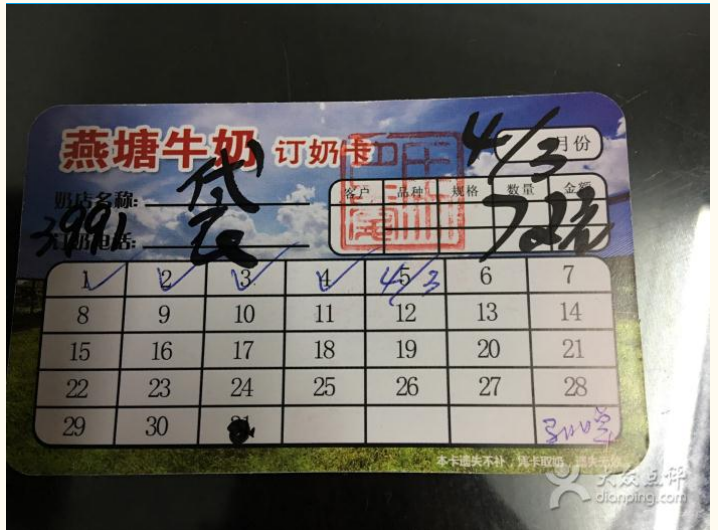 燕塘牛奶 订奶卡 4/3 月份
奶店名称: 客户 品种 规格 数量 金额
3991 订奶电话:
1 2 3 4 5 4/3 6 7
8 9 10 11 12 13 14
15 16 17 18 19 20 21
22 23 24 25 26 27 28
29 30 31
本卡遗失不补,凭卡取奶,
大众点评
dianping.com